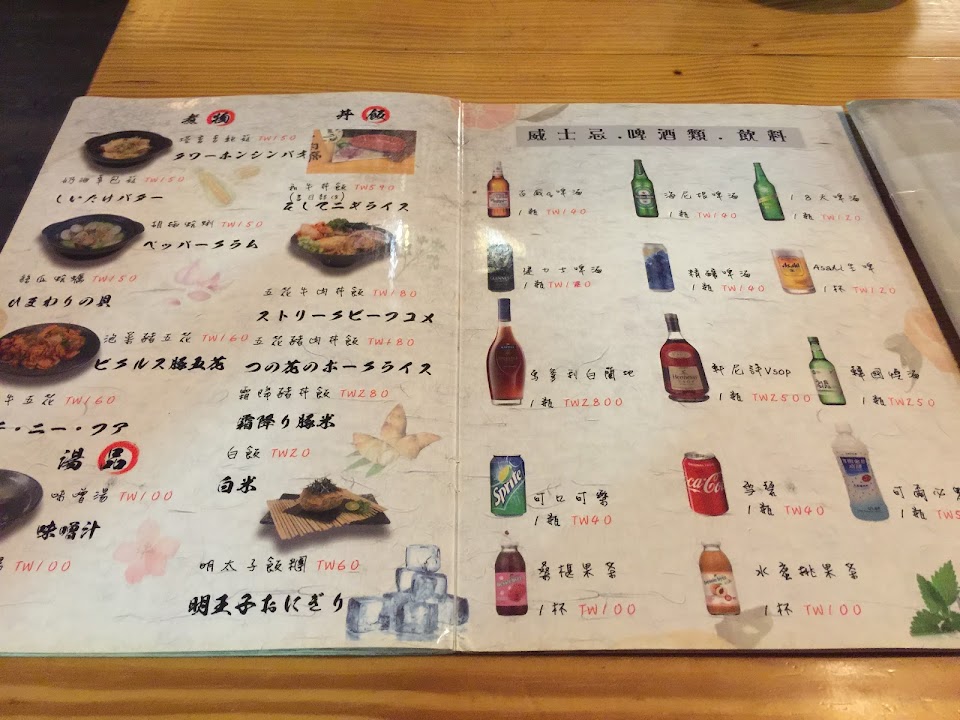 煮物
TW150
奶油 TW150
しいたけバター
胡椒蛤蜊 TW150
ペッパークラム
TW150
ひまわりの貝
泡菜豬五花 TW160
ピクルス豚五花
牛五花 TW160
湯品
味噌湯 TW100
味噌汁
TW100
丼飯
和牛丼飯 TW590
五花牛肉丼飯 TW180
ストリークビーフコメ
五花豬肉丼飯 TW180
つの花のポークライス
霜降豬丼飯 TW280
霜降り豚米
白飯 TW20
白米
明太子飯糰 TW60
明王子おにぎり
威士忌.啤酒類.飲料
百威啤酒
1瓶 TW140
海尼根啤酒
1瓶 TW140
18天啤酒
1瓶 TW120
健力士啤酒
1瓶
精釀啤酒
1瓶 TW140
Asahi生啤
1杯 TW120
白蘭地
1瓶 TW2800
軒尼詩Vsop
1瓶 TW2500
韓國燒酒
1瓶 TW250
Sprite
可口可樂
1瓶 TW40
Coca-Co
雪碧
1瓶 TW40
可爾必
1瓶
桑椹果茶
1杯 TW100
水蜜桃果茶
1杯 TW100